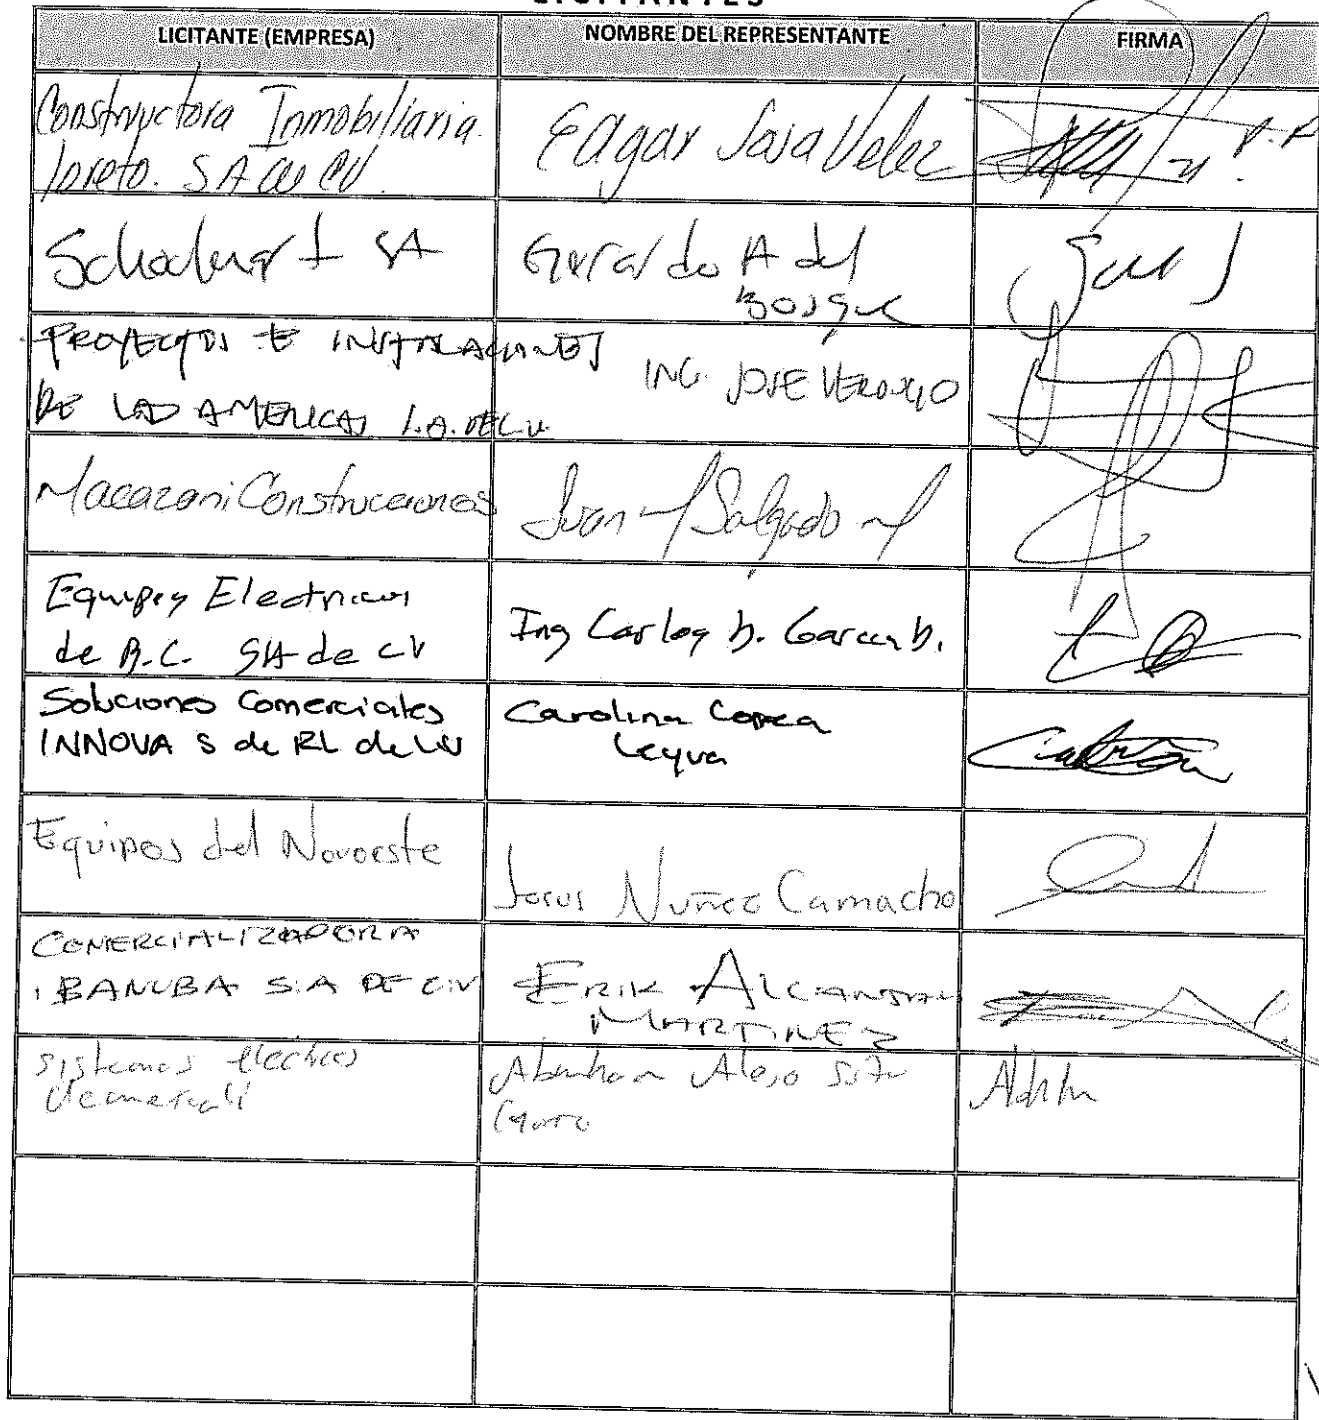 LICITANTES
LICITANTE (EMPRESA) NOMBRE DEL REPRESENTANTE FIRMA
Constructora Inmobiliaria
Loreto. SA de CV. Edgar Sosa Velez P.A.
SA Gerardo A del
Bosque
PROYECTOS E INSTALACIONES
DE LAS AMERICAS S.A. DE C.V. ING. JOSE VERDUGO
Macazani Construcciones Juan M Salgado M
Equipos Electricos
de B.C. SA de CV Ing Carlos D. Garcia D.
Soluciones Comerciales
INNOVA S de RL de CV Carolina Corea
Leyva
Equipos del Noroeste Jesus Nuñez Camacho
COMERCIALIZADORA
IBANUBA S.A DE C.V ERIK
MARTINEZ
Sistemas Electricos
Abraham Alejo